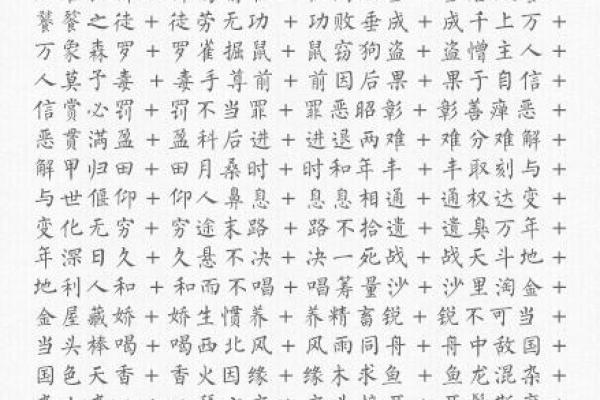 饕餮之徒 + 徒劳无功 + 功败垂成 + 成千上万 +
万象森罗 + 罗雀掘鼠 + 鼠窃狗盗 + 盗憎主人 +
人莫予毒 + 毒手尊前 + 前因后果 + 果于自信 +
信赏必罚 + 罚不当罪 + 罪恶昭彰 + 彰善瘅恶 +
恶贯满盈 + 盈科后进 + 进退两难 + 难分难解 +
解甲归田 + 田月桑时 + 时和年丰 + 丰取刻与 +
与世偃仰 + 仰人鼻息 + 息息相通 + 通权达变 +
变化无穷 + 穷途末路 + 路不拾遗 + 遗臭万年 +
年深日久 + 久悬不决 + 决一死战 + 战天斗地 +
地利人和 + 和而不唱 + 唱筹量沙 + 沙里淘金 +
金屋藏娇 + 娇生惯养 + 养精畜锐 + 锐不可当 +
当头棒喝 + 喝西北风 + 风雨同舟 + 舟中敌国 +
国色天香 + 香火因缘 + 缘木求鱼 + 鱼龙混杂 +